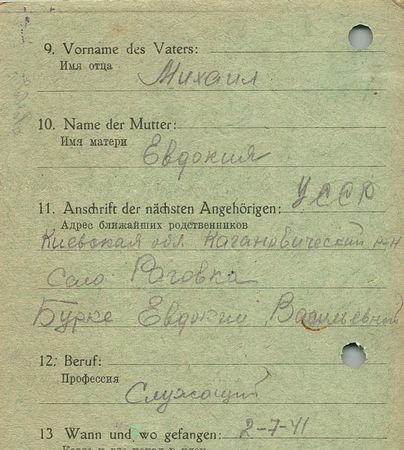 9. Vorname des Vaters:
Имя отца
Михаил
10. Name der Mutter:
Имя матери
Евдокия
11. Anschrift der nächsten Angehörigen: УССР
Адрес ближайших родственников
Киевская обл. Кагановический р-н
Село Роговка
Бурке Евдокии Васильевной
12. Beruf:
Профессия
Служащий
13 Wann und wo gefangen: 2-7-41